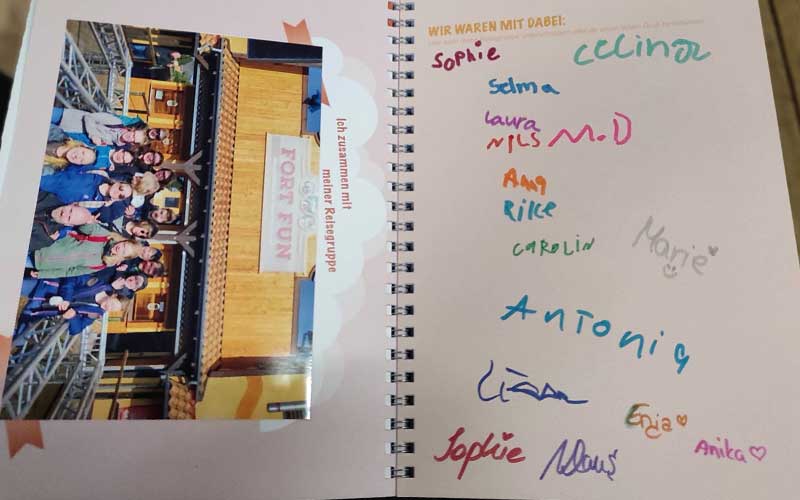 Ich zusammen mit
meiner Reisegruppe
FORT FUN
WIR WAREN MIT DABEI:
Sophie
Celina
Selma
Laura
NILS M.D
Amy
Rike
CAROLIN
Marie
Antonia
Enja
Sophie
Anika